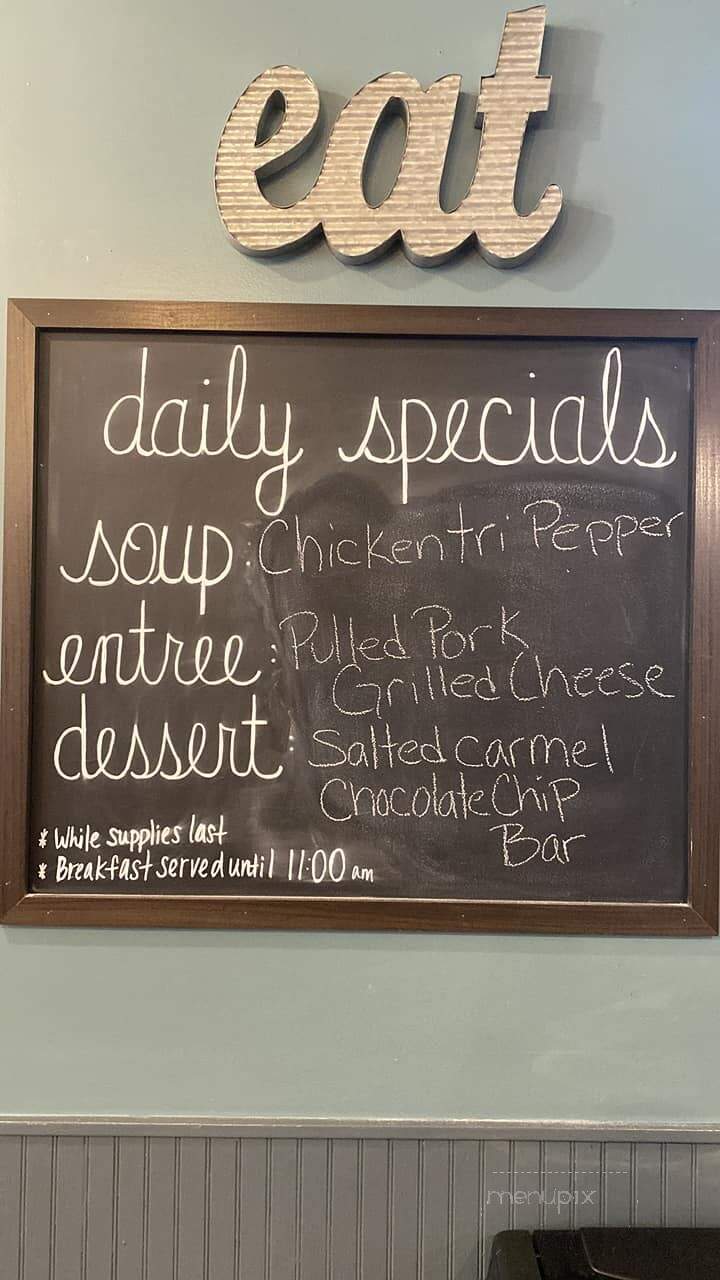 eat
daily specials
soup: Chicken tri Pepper
entree: Pulled Pork
Grilled Cheese
dessert: Salted carmel
Chocolate Chip
Bar
* While supplies last
* Breakfast served until 11:00 am
menupix